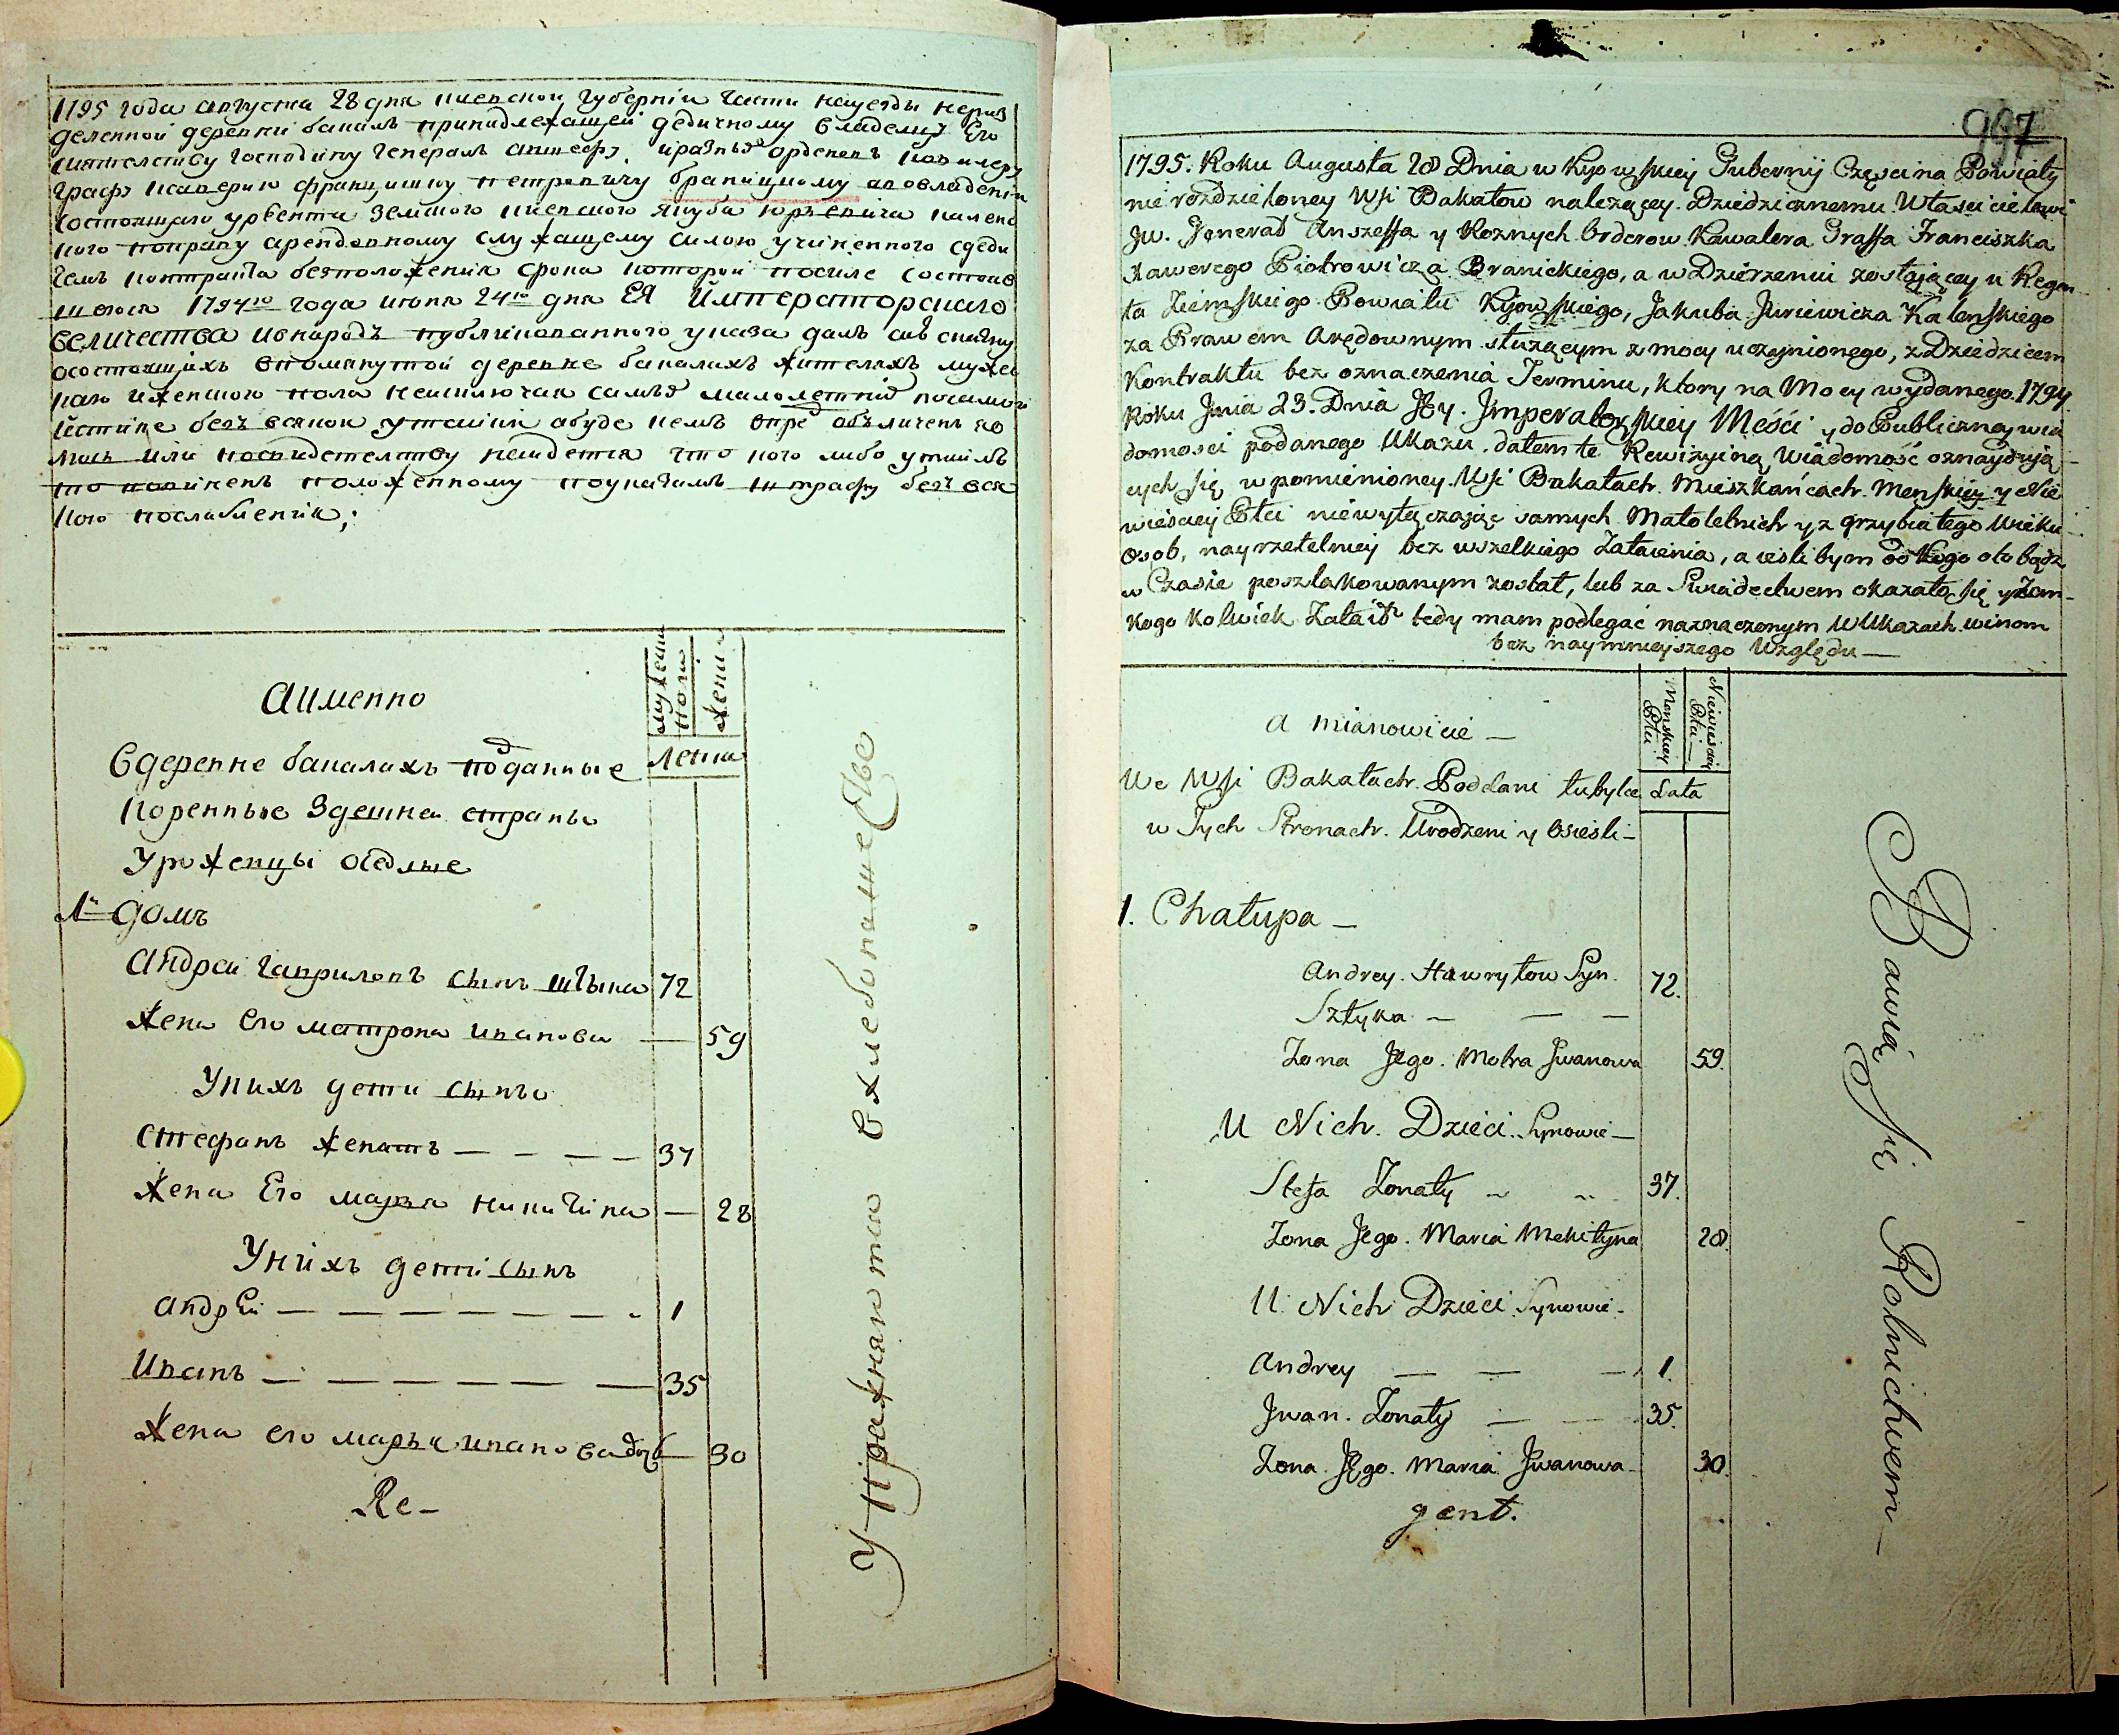 1795 года августа 28 дня киевской губерніи части науезды нераз
деленной деревни бакалъ принадлежащей дедичному владелцу Его
сиятелству господину генералъ аншефу, иразныхъ орденовъ кавалеру
графу ксаверию францишку петровичу браницкому авовладении
состоящаго урвента земского киевского якуба юрьевича каленс
кого поправу арендовному служащему силою учиненного сдеди
чемъ контракта безположения срока которой посиле состояв
шегося 1794го года июня 24го дня ЕЯ Императорскаго
величества ивнародъ публикованного указа далъ сию скаску
осостоящихъ впомянутой деревне бакалахъ жителяхъ мужес
каго иженского пола неисключая самыхъ малолетнихъ посамой
истинне безъ всякой утайки абуде кемъ впредь обличенъ яво
люсь или посвидетелству найдется что кого либо утаилъ
то повиненъ положенному поуказамъ штрафу безъ вся
кого послабления;
аимянно
мужеска пола
женска
лета
Вдеревне бакалахъ подданные
Коренные здешней страны
Уроженцы оседлые
1й домъ
Андрей гавриловъ сынъ штыка 72
Жена его матрона иванова — 59
Унихъ дети сынъ
Стефанъ женатъ — — — — 37
Жена Его марья никитина — 28
Унихъ дети сынъ
андрей — — — — — — — 1
Иванъ — — — — — — 35
Жена его марья иванова дочь — 30
Re-
Упражняются вхлебопашестве
997
1795. Roku Augusta 28 Dnia w Kyowskiey Gubernij Części na Powiaty
nie rozdzieloney Wsi Bakałow należącey Dziedzicznemu Właścicielowi
Jw. Jenerał Anszeffa y Roznych Orderow Kawalera Graffa Franciszka
Xawerego Piotrowicza Branickiego, a w Dzierżeniu zostającey u Regen
ta Ziemskiego Powiatu Kyowskiego, Jakuba Juriewicza Kalenskiego
za Prawem Arędownym służącym z mocy uczynionego, z Dziedzicem
Kontraktu bez oznaczenia Terminu, ktory na Mocy wydanego 1794.
Roku Junia 23. Dnia Jey. Jmperatorskiey Mości y do Publiczney wia
domosci podanego Ukazu. dałem te Rewizyiną Wiadomość oznayduią
cych się w pomienioney Wsi Bakałach. Mieszkańcach. Menskiey y Nie
wiesciey Płci niewyłączaiąc samych Małoletnich y z grzybiałego Wieku
Osob, nayrzetelniey bez wszelkiego Zataienia, a ieśli bym od Kogo oto bądz
w Czasie poszlakowanym został, lub za Swiadectwem okazało się yżem
kogo kolwiek Zataił tedy mam podlegać naznaczonym w Ukazach winom
bez naymnieyszego Względu —
a mianowicie —
Menskiey Płci
Niewiesciey Płci
Lata
We Wsi Bakałach. Poddani tubylce
w Tych Stronach. Urodzeni y Osieśli —
1. Chałupa —
Andrey. Hawryłow Syn. 72.
Sztyka — — —
Zona Jego. Motra Jwanowa 59.
U Nich. Dzieci. Synowie —
Stefa Zonaty 37.
Zona Jego. Maria Mekityna 28.
U Nich Dzieci Synowie.
Andrey — — — 1.
Jwan. Zonaty — — 35.
Zona Jego. Maria Jwanowa 30.
gent.
Bawią się Rolnictwem —